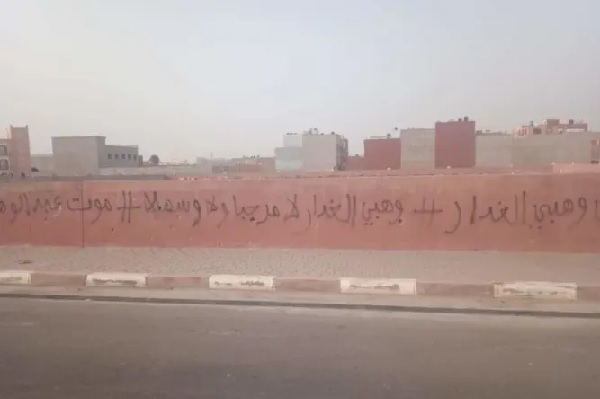 وهبي الغدار # وهبي الغدار لا مرحبا ولا وسهلا # موت عبد الوه